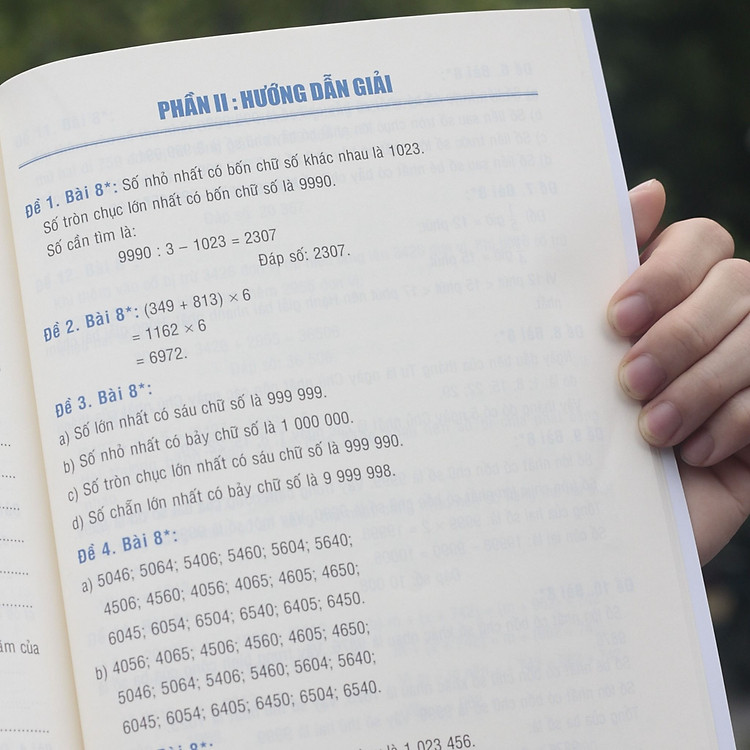 PHẦN II : HƯỚNG DẪN GIẢI
Đề 1. Bài 8*: Số nhỏ nhất có bốn chữ số khác nhau là 1023.
Số tròn chục lớn nhất có bốn chữ số là 9990.
Số cần tìm là:
9990 : 3 – 1023 = 2307
Đáp số: 2307.
Đề 2. Bài 8*: (349 + 813) × 6
= 1162 × 6
= 6972.
Đề 3. Bài 8*:
a) Số lớn nhất có sáu chữ số là 999 999.
b) Số nhỏ nhất có bảy chữ số là 1 000 000.
c) Số tròn chục lớn nhất có sáu chữ số là 999 990.
d) Số chẵn lớn nhất có bảy chữ số là 9 999 998.
Đề 4. Bài 8*:
a) 5046; 5064; 5406; 5460; 5604; 5640;
4506; 4560; 4056; 4065; 4605; 4650;
6045; 6054; 6504; 6540; 6405; 6450.
b) 4056; 4065; 4506; 4560; 4605; 4650;
5046; 5064; 5406; 5460; 5604; 5640;
6045; 6054; 6405; 6450; 6504; 6540.
8*:
là 1 023 456.
của